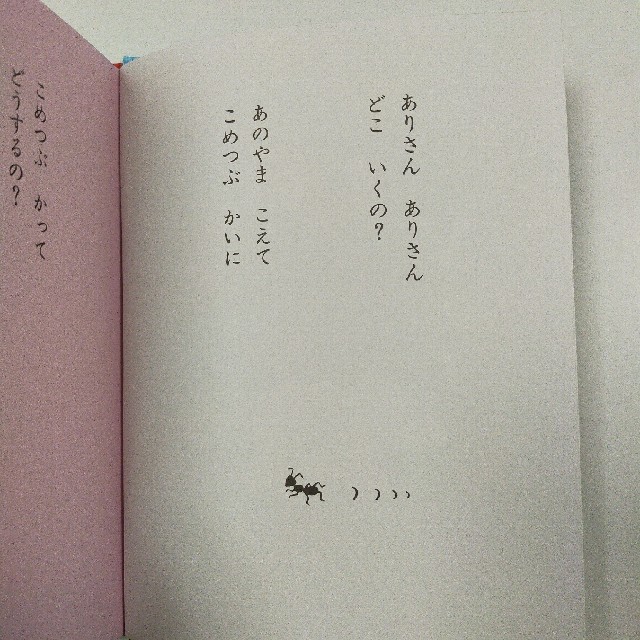 ありさん ありさん
どこ いくの?
あのやま こえて
こめつぶ かいに
こめつぶ かって
どうするの?